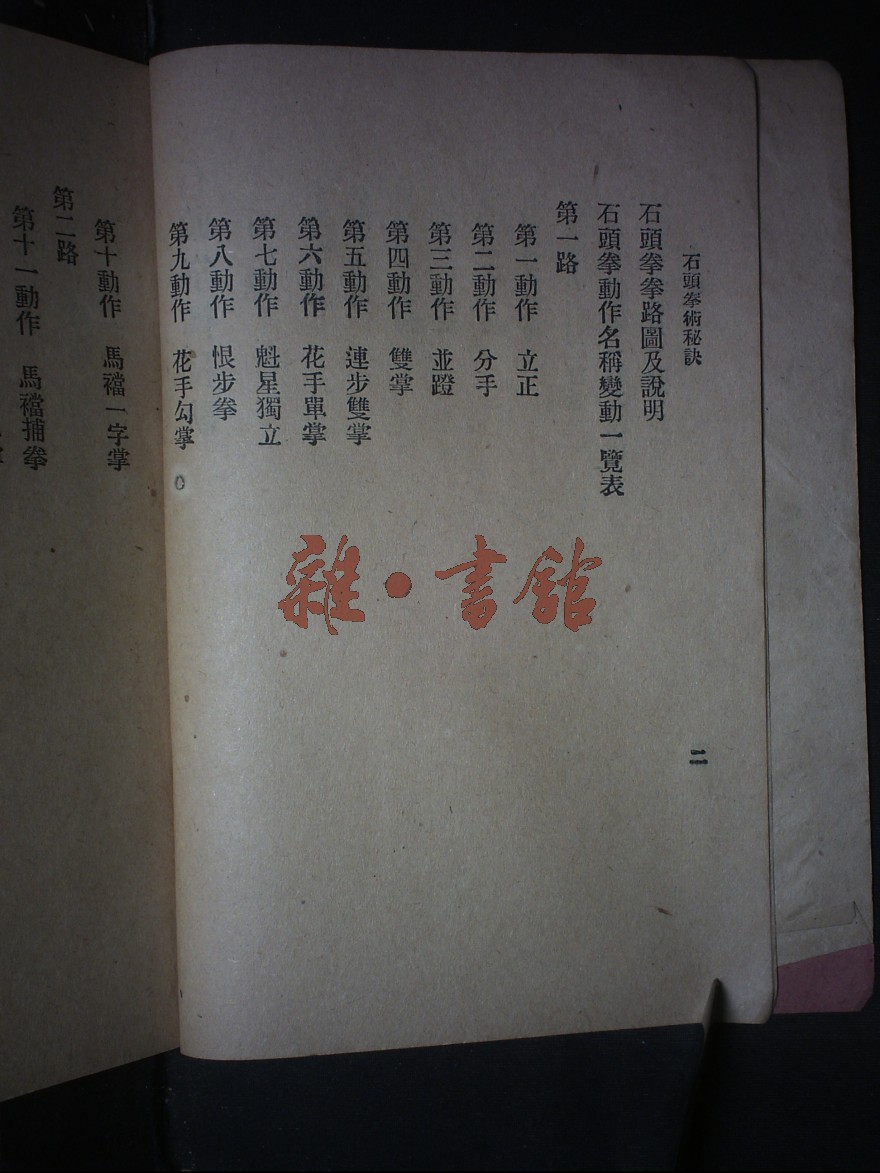 石頭拳術秘訣
二
石頭拳拳路圖及說明
石頭拳動作名稱變動一覽表
第一路
第一動作　立正
第二動作　分手
第三動作　並蹬
第四動作　雙掌
第五動作　連步雙掌
第六動作　花手單掌
第七動作　魁星獨立
第八動作　恨步拳
第九動作　花手勾掌
第十動作　馬襠一字掌
第二路
第十一動作　馬襠捕拳
雜·書館